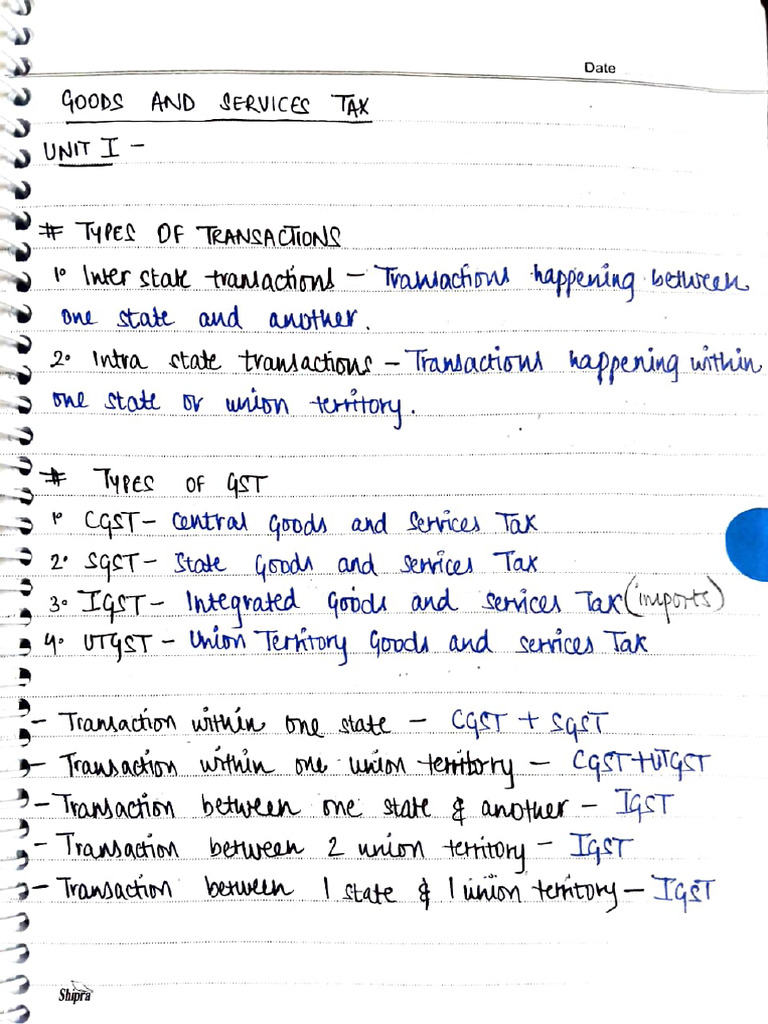 Date
GOODS AND SERVICES TAX
UNIT I -
# TYPES OF TRANSACTIONS
1. Inter state transactions - Transactions happening between
one state and another.
2. Intra state transactions - Transactions happening within
one state or union territory.
# TYPES OF GST
1. CGST - Central Goods and Services Tax
2. SGST - State Goods and services Tax
3. IGST - Integrated Goods and services Tax (imports)
4. UTGST - Union Territory Goods and services Tax
- Transaction within one state - CGST + SGST
- Transaction within one union territory - CGST+UTGST
- Transaction between one state & another - IGST
- Transaction between 2 union territory - IGST
- Transaction between 1 state & 1 union territory - IGST
Shipra